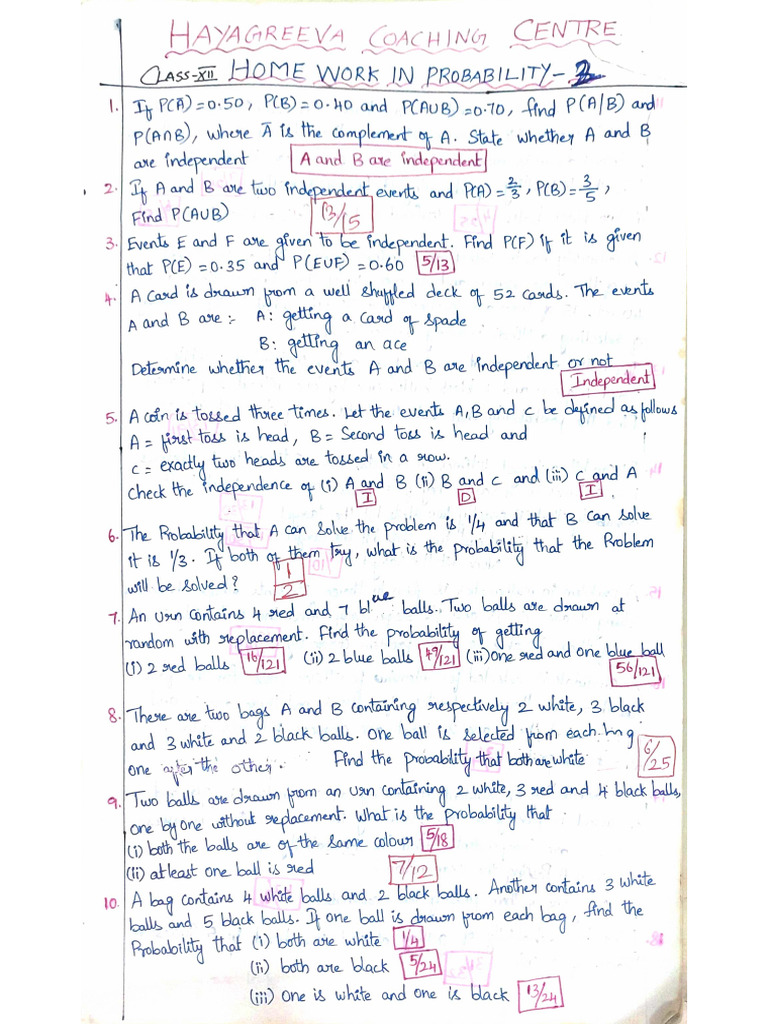 HAYAGREEVA COACHING CENTRE
CLASS-XII HOME WORK IN PROBABILITY-2
1. If P(A)=0.50, P(B)=0.40 and P(AUB)=0.70, find P(A/B) and
P(A∩B), where Ā is the complement of A. State whether A and B
are independent A and B are independent
2. If A and B are two independent events and P(A)=2/3, P(B)=3/5,
Find P(AUB) 13/15
3. Events E and F are given to be independent. Find P(F) if it is given
that P(E)=0.35 and P(EUF)=0.60 5/13
4. A card is drawn from a well shuffled deck of 52 cards. The events
A and B are:- A: getting a card of spade
B: getting an ace
Determine whether the events A and B are independent or not
Independent
5. A coin is tossed three times. Let the events A, B and C be defined as follows
A = first toss is head, B = Second toss is head and
C = exactly two heads are tossed in a row.
Check the independence of (i) A and B (ii) B and C and (iii) C and A
I D I
6. The Probability that A can solve the problem is 1/4 and that B can solve
it is 1/3. If both of them try, what is the probability that the Problem
will be solved? 1/2
7. An urn contains 4 red and 7 blue balls. Two balls are drawn at
random with replacement. Find the probability of getting
(i) 2 red balls 16/121 (ii) 2 blue balls 49/121 (iii) one red and one blue ball
56/121
8. There are two bags A and B containing respectively 2 white, 3 black
and 3 white and 2 black balls. One ball is selected from each bag
one after the other. Find the probability that both are white 6/25
9. Two balls are drawn from an urn containing 2 white, 3 red and 4 black balls,
one by one without replacement. What is the probability that
(i) both the balls are of the same colour 5/18
(ii) atleast one ball is red 7/12
10. A bag contains 4 white balls and 2 black balls. Another contains 3 white
balls and 5 black balls. If one ball is drawn from each bag, find the
Probability that (i) both are white 1/4
(ii) both are black 5/24
(iii) one is white and one is black 13/24